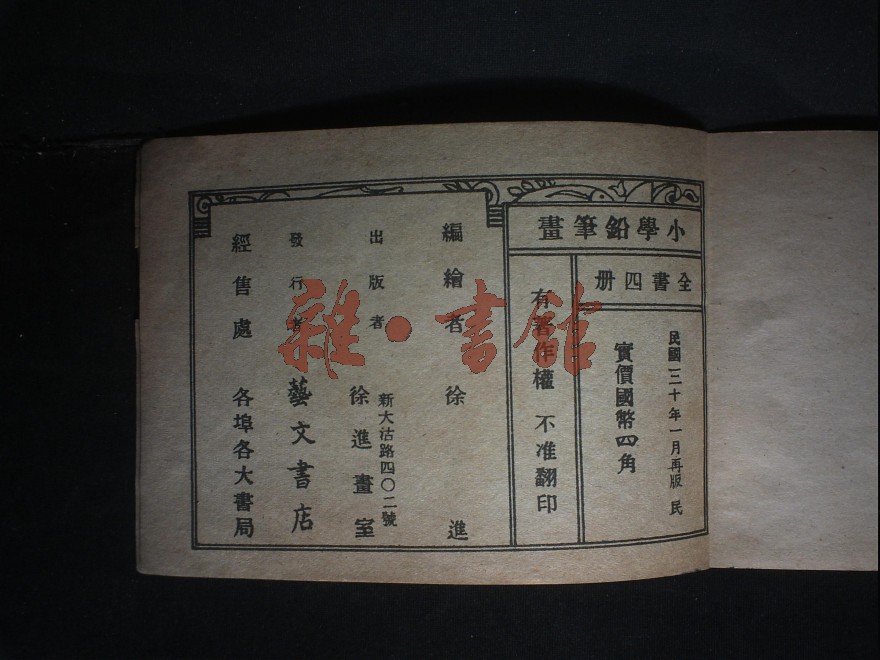 小學鉛筆畫
全書四册
民國三十年一月再版 民
實價國幣四角
有著作權 不准翻印
編繪者 徐進
出版者 徐進畫室
新大沽路四〇二號
發行者 藝文書店
經售處 各埠各大書局
雜·書館